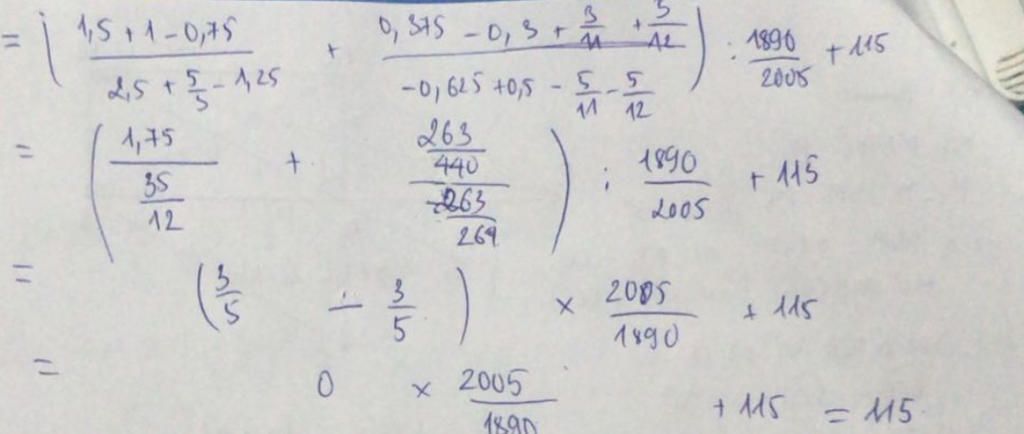 = ( (1,5 + 1 - 0,75)/(2,5 + 5/3 - 1,25) + (0,375 - 0,3 + 3/11 + 3/12)/(-0,625 + 0,5 - 5/11 - 5/12) ) : 1890/2005 + 115
= ( 1,75/(35/12) + (263/440)/(-263/264) ) : 1890/2005 + 115
= ( 3/5 - 3/5 ) × 2005/1890 + 115
= 0 × 2005/1890 + 115 = 115